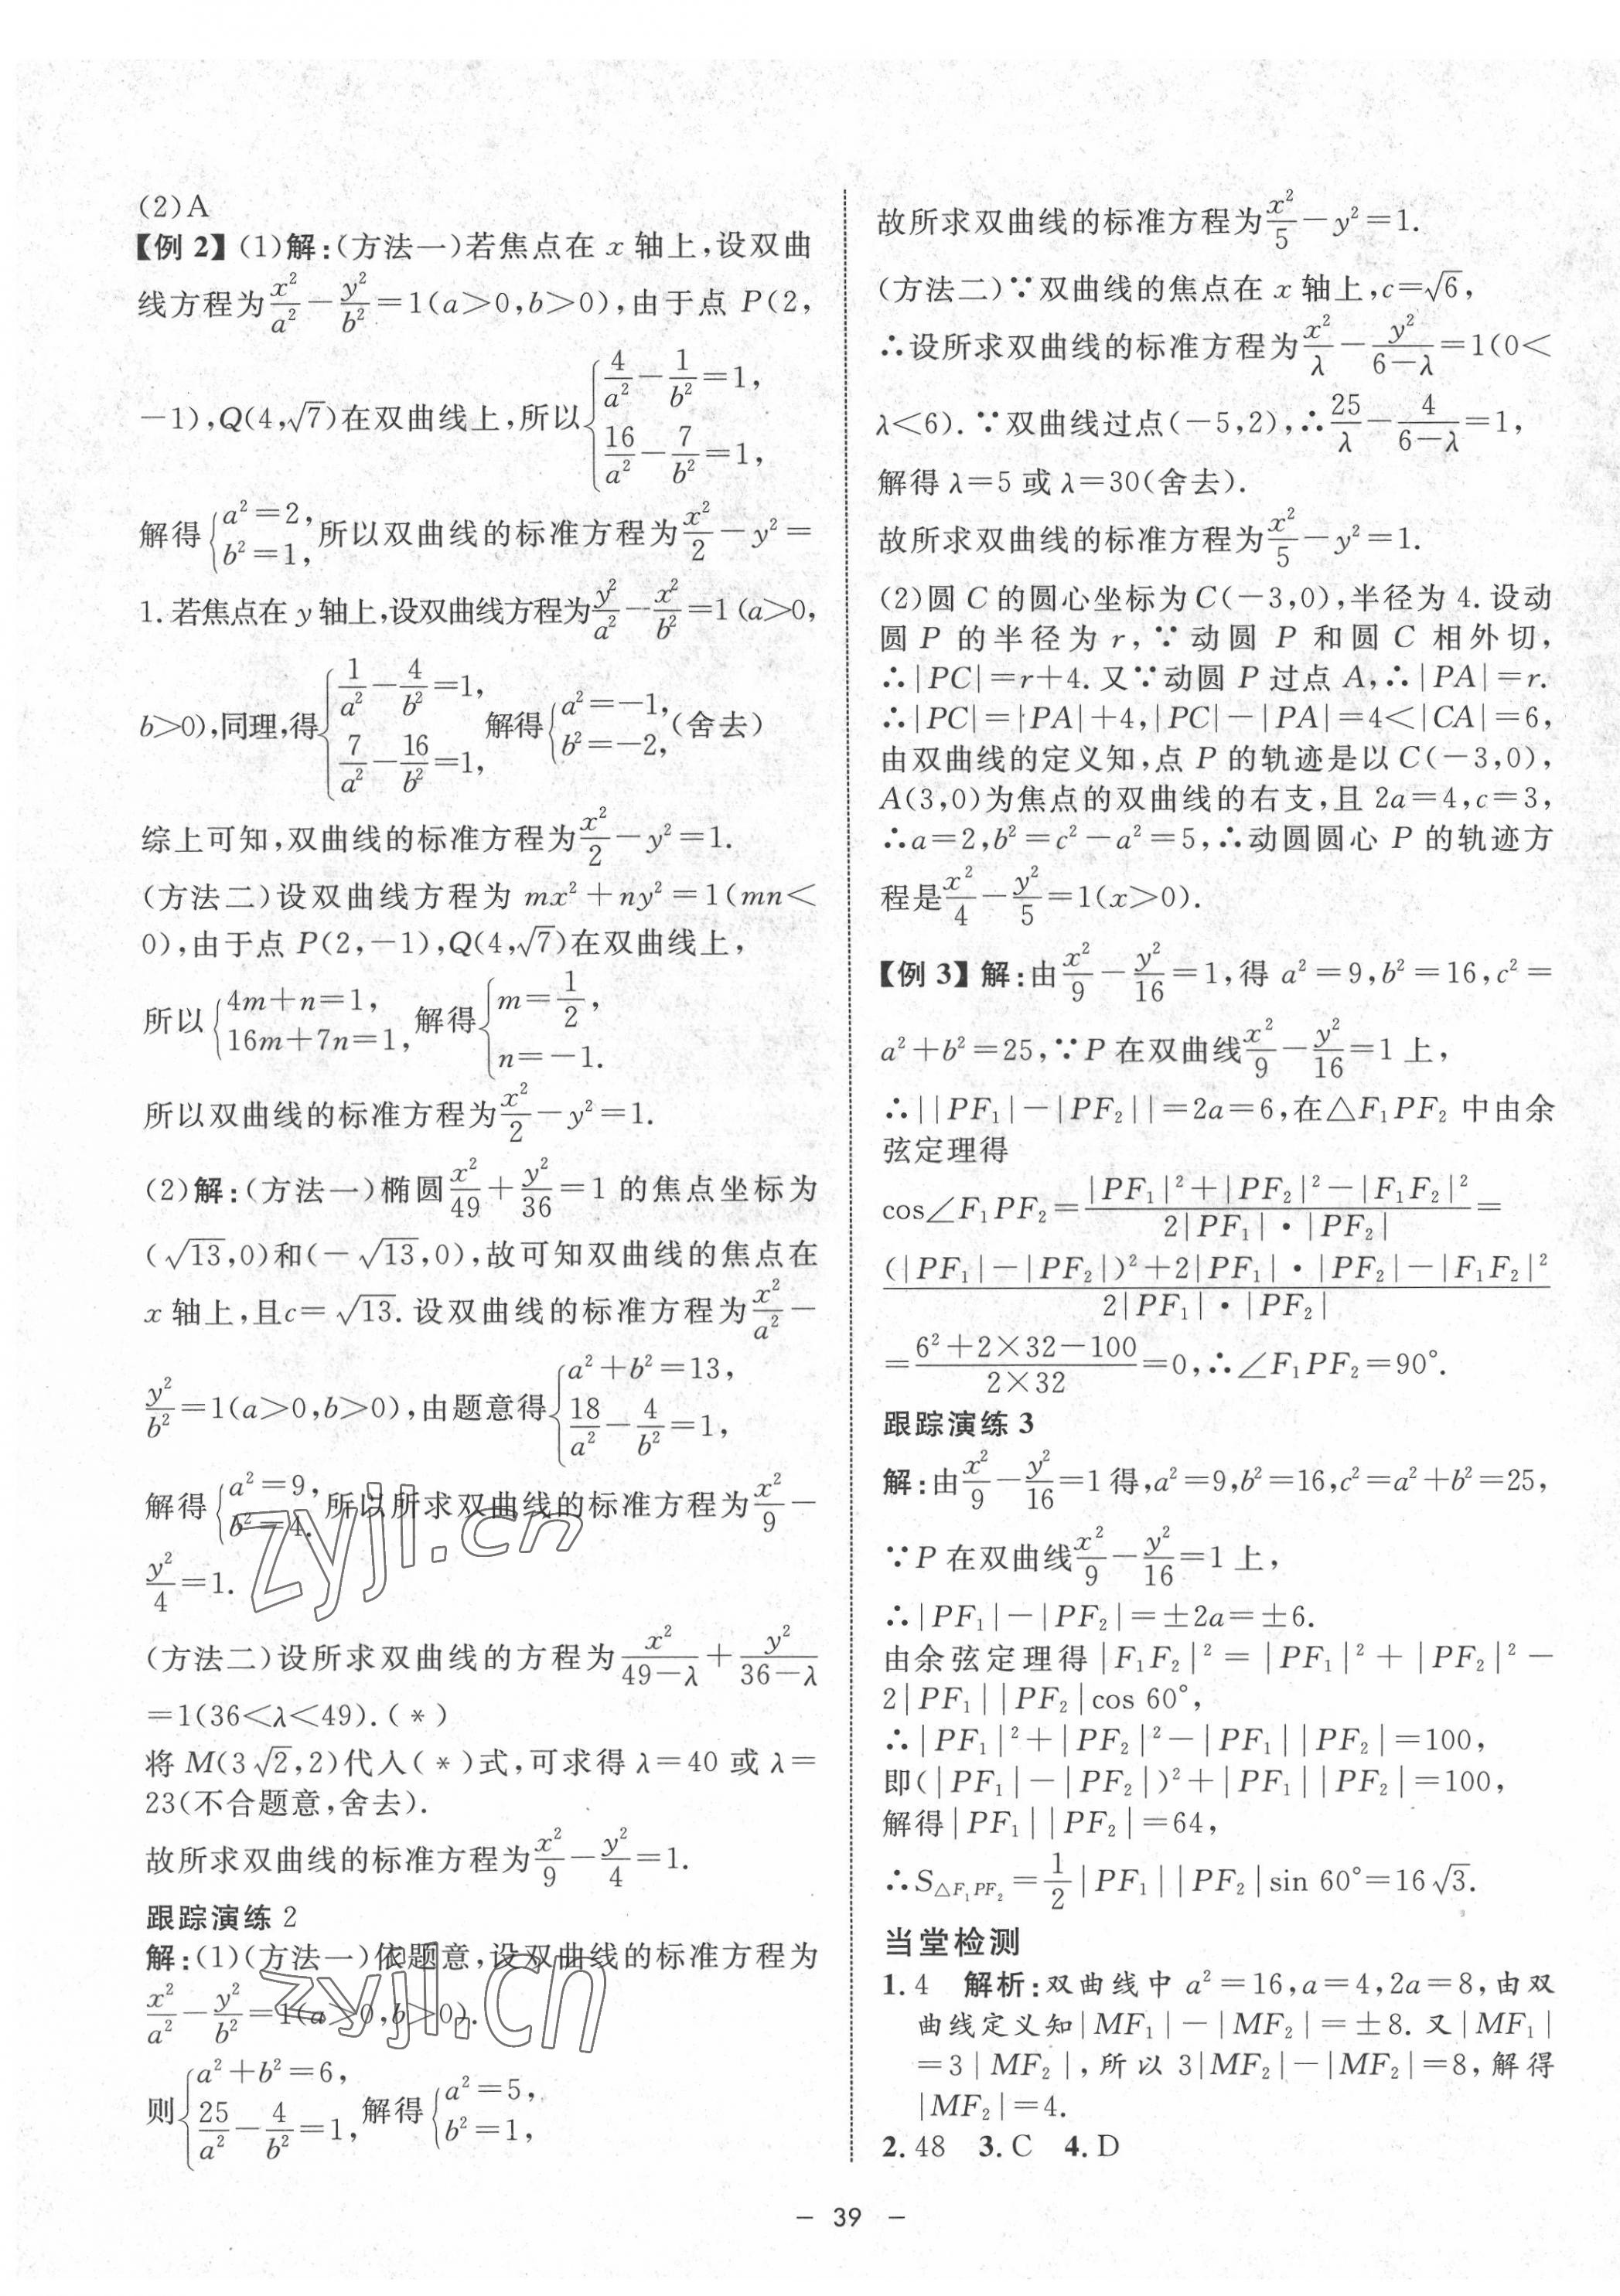 (2)A
【例 2】(1)解:(方法一)若焦点在 x 轴上,设双曲
线方程为x²/a²－y²/b²＝1(a＞0,b＞0),由于点 P(2,
－1),Q(4,√7)在双曲线上,所以{4/a²－1/b²＝1, 16/a²－7/b²＝1,
解得{a²＝2, b²＝1, 所以双曲线的标准方程为x²/2－y²＝
1. 若焦点在 y 轴上,设双曲线方程为y²/a²－x²/b²＝1 (a＞0,
b＞0),同理,得{1/a²－4/b²＝1, 7/a²－16/b²＝1, 解得{a²＝－1, b²＝－2, (舍去)
综上可知,双曲线的标准方程为x²/2－y²＝1.
(方法二)设双曲线方程为 mx²＋ny²＝1(mn＜
0),由于点 P(2,－1),Q(4,√7)在双曲线上,
所以{4m＋n＝1, 16m＋7n＝1, 解得{m＝1/2, n＝－1.
所以双曲线的标准方程为x²/2－y²＝1.
(2)解:(方法一)椭圆x²/49＋y²/36＝1 的焦点坐标为
(√13,0)和(－√13,0),故可知双曲线的焦点在
x 轴上,且c＝√13. 设双曲线的标准方程为x²/a²－
y²/b²＝1(a＞0,b＞0),由题意得{a²＋b²＝13, 18/a²－4/b²＝1,
解得{a²＝9, b²＝4. 所以所求双曲线的标准方程为x²/9－
y²/4＝1.
(方法二)设所求双曲线的方程为x²/(49－λ)＋y²/(36－λ)
＝1(36＜λ＜49).(＊)
将 M(3√2,2)代入(＊)式,可求得 λ＝40 或 λ＝
23(不合题意,舍去).
故所求双曲线的标准方程为x²/9－y²/4＝1.
跟踪演练 2
解:(1)(方法一)依题意,设双曲线的标准方程为
x²/a²－y²/b²＝1(a＞0,b＞0).
则{a²＋b²＝6, 25/a²－4/b²＝1, 解得{a²＝5, b²＝1,
故所求双曲线的标准方程为x²/5－y²＝1.
(方法二)∵双曲线的焦点在 x 轴上,c＝√6,
∴设所求双曲线的标准方程为x²/λ－y²/(6－λ)＝1(0＜
λ＜6). ∵双曲线过点(－5,2),∴25/λ－4/(6－λ)＝1,
解得 λ＝5 或 λ＝30(舍去).
故所求双曲线的标准方程为x²/5－y²＝1.
(2)圆 C 的圆心坐标为C(－3,0),半径为 4. 设动
圆 P 的半径为 r,∵动圆 P 和圆 C 相外切,
∴|PC|＝r＋4. 又∵动圆 P 过点 A,∴|PA|＝r.
∴|PC|＝|PA|＋4,|PC|－|PA|＝4＜|CA|＝6,
由双曲线的定义知,点 P 的轨迹是以 C(－3,0),
A(3,0)为焦点的双曲线的右支,且 2a＝4,c＝3,
∴a＝2,b²＝c²－a²＝5,∴动圆圆心 P 的轨迹方
程是x²/4－y²/5＝1(x＞0).
【例 3】解:由x²/9－y²/16＝1,得 a²＝9,b²＝16,c²＝
a²＋b²＝25,∵P 在双曲线x²/9－y²/16＝1 上,
∴||PF₁|－|PF₂||＝2a＝6,在△F₁PF₂ 中由余
弦定理得
cos∠F₁PF₂＝(|PF₁|²＋|PF₂|²－|F₁F₂|²)/(2|PF₁|·|PF₂|)＝
((|PF₁|－|PF₂|)²＋2|PF₁|·|PF₂|－|F₁F₂|²)/(2|PF₁|·|PF₂|)
＝(6²＋2×32－100)/(2×32)＝0,∴∠F₁PF₂＝90°.
跟踪演练 3
解:由x²/9－y²/16＝1 得,a²＝9,b²＝16,c²＝a²＋b²＝25,
∵P 在双曲线x²/9－y²/16＝1 上,
∴|PF₁|－|PF₂|＝±2a＝±6.
由余弦定理得|F₁F₂|²＝|PF₁|²＋|PF₂|²－
2|PF₁||PF₂|cos 60°,
∴|PF₁|²＋|PF₂|²－|PF₁||PF₂|＝100,
即(|PF₁|－|PF₂|)²＋|PF₁||PF₂|＝100,
解得|PF₁||PF₂|＝64,
∴S△F₁PF₂＝1/2|PF₁||PF₂|sin 60°＝16√3.
当堂检测
1. 4 解析:双曲线中 a²＝16,a＝4,2a＝8,由双
曲线定义知|MF₁|－|MF₂|＝±8. 又|MF₁|
＝3|MF₂|,所以 3|MF₂|－|MF₂|＝8,解得
|MF₂|＝4.
2. 48 3. C 4. D
zyjl.cn
zyjl.cn
－ 39 －